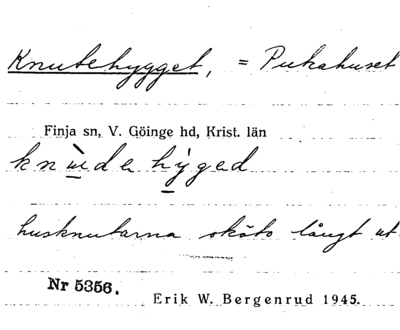 Knutehygget, = Pukahuset
Finja sn, V. Göinge hd, Krist. län
knùde hỳged
husknutarna sköto långt ut
Nr 5356.
Erik W. Bergenrud 1945.